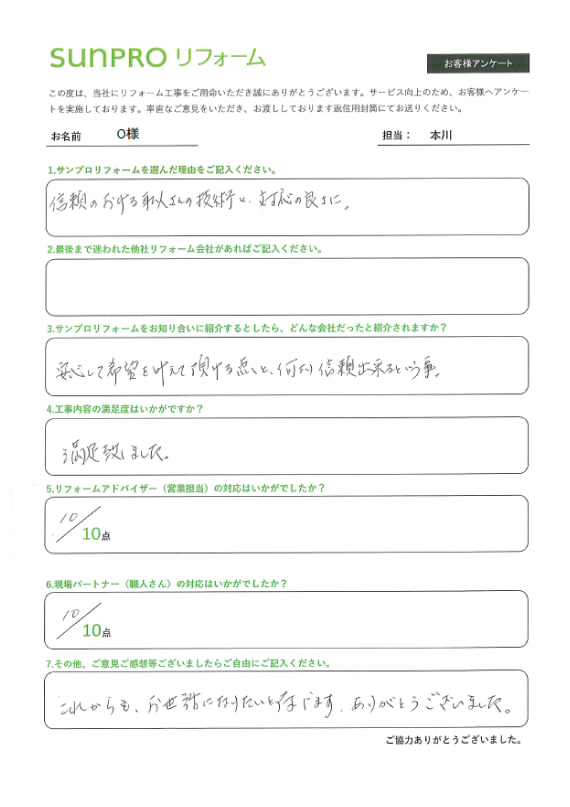 SUNPRO リフォーム
お客様アンケート
この度は、当社にリフォーム工事をご用命いただき誠にありがとうございます。サービス向上のため、お客様へアンケー
トを実施しております。率直なご意見をいただき、お渡ししております返信用封筒にてお送りください。
お名前 O様 担当： 本川
1.サンプロリフォームを選んだ理由をご記入ください。
信頼のおける職人さんの技術と、対応の良さに。
2.最後まで迷われた他社リフォーム会社があればご記入ください。
3.サンプロリフォームをお知り合いに紹介するとしたら、どんな会社だったと紹介されますか？
安心して希望を叶えて頂ける点と、何より信頼出来るという事。
4.工事内容の満足度はいかがですか？
満足致しました。
5.リフォームアドバイザー（営業担当）の対応はいかがでしたか？
10/10点
6.現場パートナー（職人さん）の対応はいかがでしたか？
10/10点
7.その他、ご意見ご感想等ございましたらご自由にご記入ください。
これからも、お世話になりたいと存じます。ありがとうございました。
ご協力ありがとうございました。